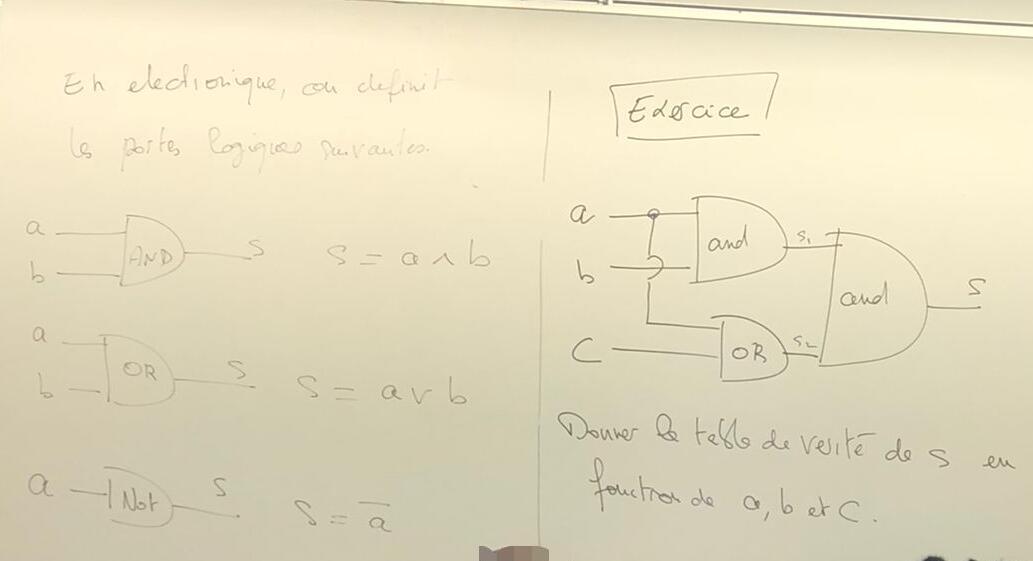 En electronique, on definit
les portes logiques suivantes.
a
b
AND
S
S = a ∧ b
a
b
OR
S
S = a ∨ b
a
Not
S
S = a̅
Exercice
a
b
C
and
S₁
OR
S₂
and
S
Donner la table de verité de S en
fonction de a, b et C.